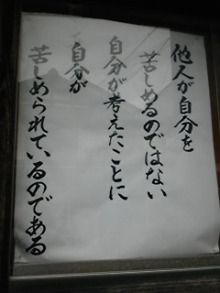 他人が自分を
苦しめるのではない
自分が考えたことに
自分が
苦しめられているのである